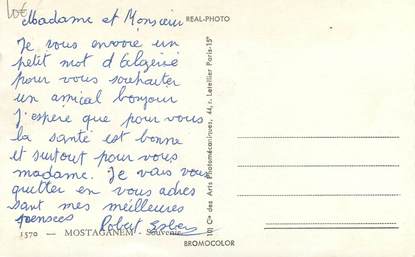 10€
Madame et Monsieur
REAL-PHOTO
Je vous envoie un
petit mot d'Algérie
pour vous souhaiter
un amical bonjour
J'espère que pour vous
la santé est bonne
et surtout pour vous
madame. Je vais vous
quitter en vous adres
sant mes meilleures
pensées
Robert
1570 — MOSTAGANEM - Souvenir
BROMOCOLOR
Cie des Arts Photomécaniques, 44, r. Letellier Paris-15e